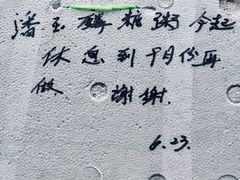 潘玉祥糖粥今起
休息到9月份再
做 谢谢.
6.23.